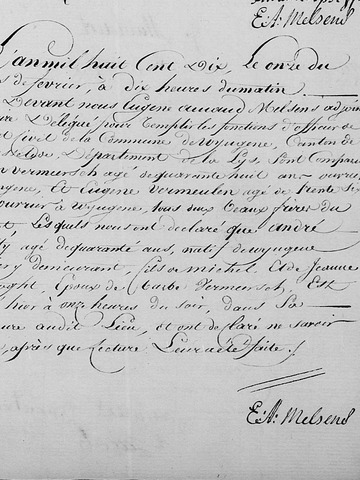 E: A: Melsens
L'an mil huit Cent Dix, le onze du
de fevrier, à dix heures du matin
Devant nous Eugène amand Melsens adjoin
Délégué pour remplir les fonctions d'officier de
Civil de la Commune de wyngene, Canton de
Département de la Lys, sont Comparu
Vermersch agé de quarante huit ans ouvri
gene, Et Eugene Vermeulen agé de trente Si
ouvrier à Wyngene, tous deux Beaux freres du
Lesquels nous ont déclaré que andré
agé de quarante ans, natif de wyngene
demeurant, fils de michel Et de Jeanne
Epoux de Barbe Vermersch, Est
hier à onze heures du soir, dans Sa
ure audit Lieu, et ont declaré ne savoir
après que Lecture Leur a été faite ./.
E: A: Melsens